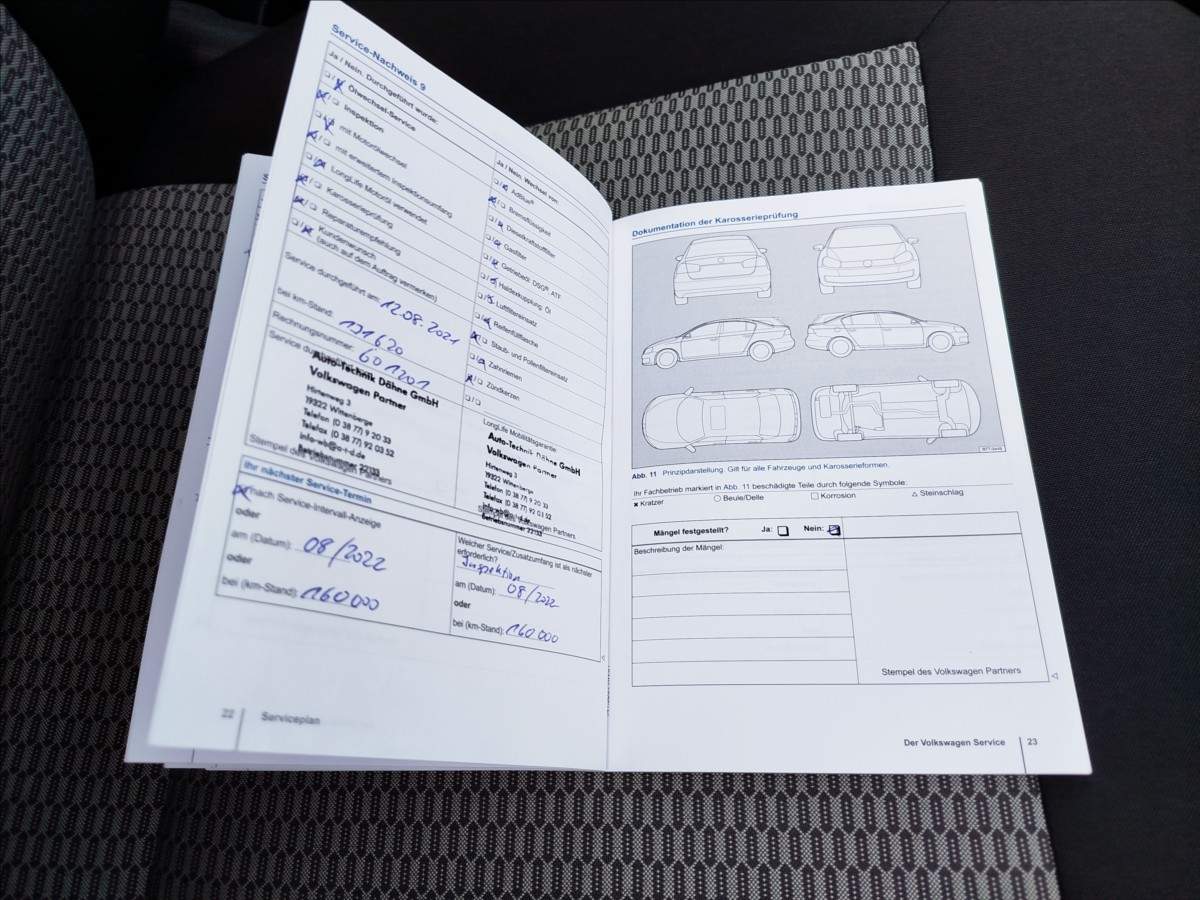 Service-Nachweis 9
Ja / Nein. Durchgeführt wurde:
Ölwechsel-Service
Inspektion
mit Motorölwechsel
mit erweitertem Inspektionsumfang
LongLife Motoröl verwendet
Karosserieprüfung
Reparaturempfehlung
Kundenwunsch
(auch auf dem Auftrag vermerken)
Service durchgeführt am: 12.08.2021
bei km-Stand: 131620
Rechnungsnummer: 601201
Auto-Technik Dähne GmbH
Volkswagen Partner
Hirtenweg 3
19322 Wittenberge
Telefon (0 38 77) 9 20 33
Telefax (0 38 77) 92 03 52
info-wb@a-t-d.de
Betriebsnummer 22133
Stempel des Volkswagen Partners
Ja / Nein. Wechsel von:
AdBlue®
Bremsflüssigkeit
Dieselkraftstofffilter
Gasfilter
Getriebeöl: DSG®, ATF
Haldexkupplung: Öl
Luftfiltereinsatz
Reifenfüllflasche
Staub- und Pollenfiltereinsatz
Zahnriemen
Zündkerzen
LongLife Mobilitätsgarantie
Auto-Technik Dähne GmbH
Volkswagen Partner
Hirtenweg 3
19322 Wittenberge
Telefon (0 38 77) 9 20 33
Telefax (0 38 77) 92 03 52
info-wb@a-t-d.de
Stempel des Volkswagen Partners
Betriebsnummer 22133
Ihr nächster Service-Termin
nach Service-Intervall-Anzeige
oder
am (Datum): 08/2022
oder
bei (km-Stand): 160 000
Welcher Service/Zusatzumfang ist als nächster
erforderlich?
Inspektion
am (Datum): 08/2022
oder
bei (km-Stand): 160 000
22 Serviceplan
Dokumentation der Karosserieprüfung
Abb. 11 Prinzipdarstellung. Gilt für alle Fahrzeuge und Karosserieformen.
Ihr Fachbetrieb markiert in Abb. 11 beschädigte Teile durch folgende Symbole:
Kratzer Beule/Delle Korrosion Steinschlag
Mängel festgestellt? Ja: Nein:
Beschreibung der Mängel:
Stempel des Volkswagen Partners
Der Volkswagen Service 23